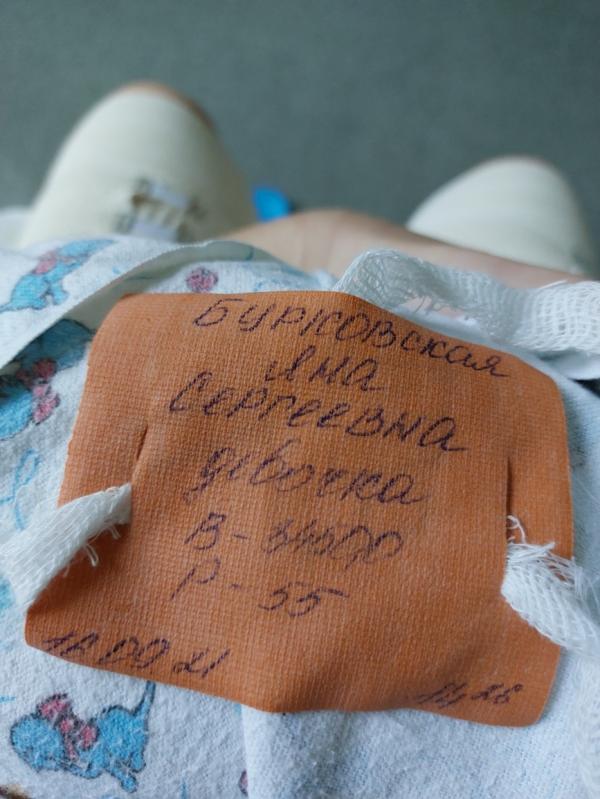 Бурковская
Яна
Сергеевна
девочка
В-3450
Р-55
21